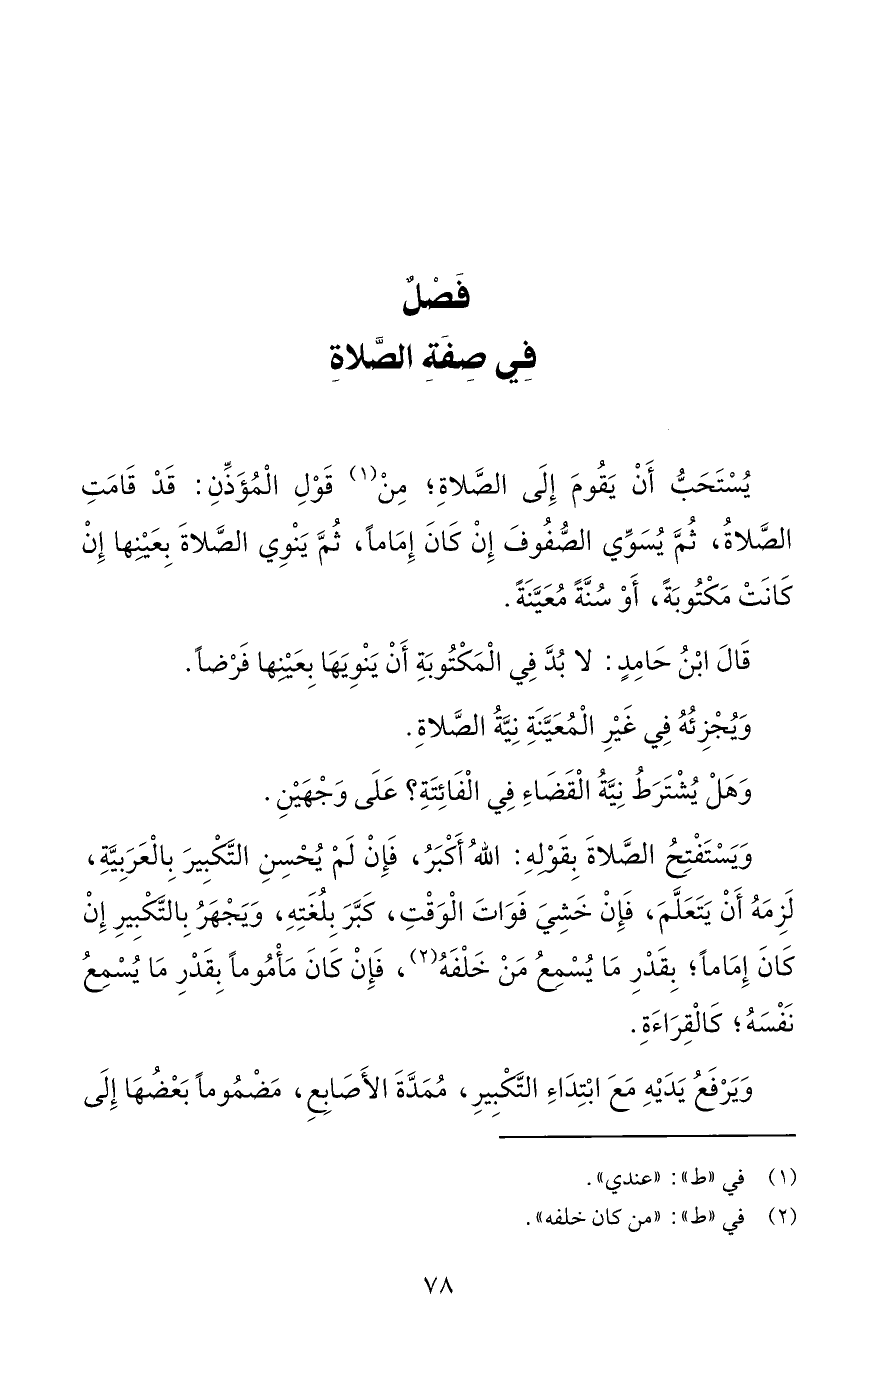 فَصْلٌ
فِي صِفَةِ الصَّلاةِ
يُسْتَحَبُّ أَنْ يَقُومَ إِلَى الصَّلاةِ؛ مِنْ(١) قَوْلِ الْمُؤَذِّنِ: قَدْ قَامَتِ
الصَّلاةُ، ثُمَّ يُسَوِّي الصُّفُوفَ إِنْ كَانَ إِمَاماً، ثُمَّ يَنْوِي الصَّلاةَ بِعَيْنِها إِنْ
كَانَتْ مَكْتُوبَةً، أَوْ سُنَّةً مُعَيَّنَةً.
قَالَ ابْنُ حَامِدٍ: لا بُدَّ فِي الْمَكْتُوبَةِ أَنْ يَنْوِيَهَا بِعَيْنِها فَرْضاً.
وَيُجْزِئُهُ فِي غَيْرِ الْمُعَيَّنَةِ نِيَّةُ الصَّلاةِ.
وَهَلْ يُشْتَرَطُ نِيَّةُ الْقَضَاءِ فِي الْفَائِتَةِ؟ عَلَى وَجْهَيْنِ.
وَيَسْتَفْتِحُ الصَّلاةَ بِقَوْلِهِ: اللهُ أَكْبَرُ، فَإِنْ لَمْ يُحْسِنِ التَّكْبِيرَ بِالْعَرَبِيَّةِ،
لَزِمَهُ أَنْ يَتَعَلَّمَ، فَإِنْ خَشِيَ فَوَاتَ الْوَقْتِ، كَبَّرَ بِلُغَتِهِ، وَيَجْهَرُ بِالتَّكْبِيرِ إِنْ
كَانَ إِمَاماً؛ بِقَدْرِ مَا يُسْمِعُ مَنْ خَلْفَهُ(٢)، فَإِنْ كَانَ مَأْمُوماً بِقَدْرِ مَا يُسْمِعُ
نَفْسَهُ؛ كَالْقِرَاءَةِ.
وَيَرْفَعُ يَدَيْهِ مَعَ ابْتِدَاءِ التَّكْبِيرِ، مُمَدَّةَ الأَصَابِعِ، مَضْمُوماً بَعْضُهَا إِلَى
(١) في «ط»: «عندي».
(٢) في «ط»: «من كان خلفه».
٧٨